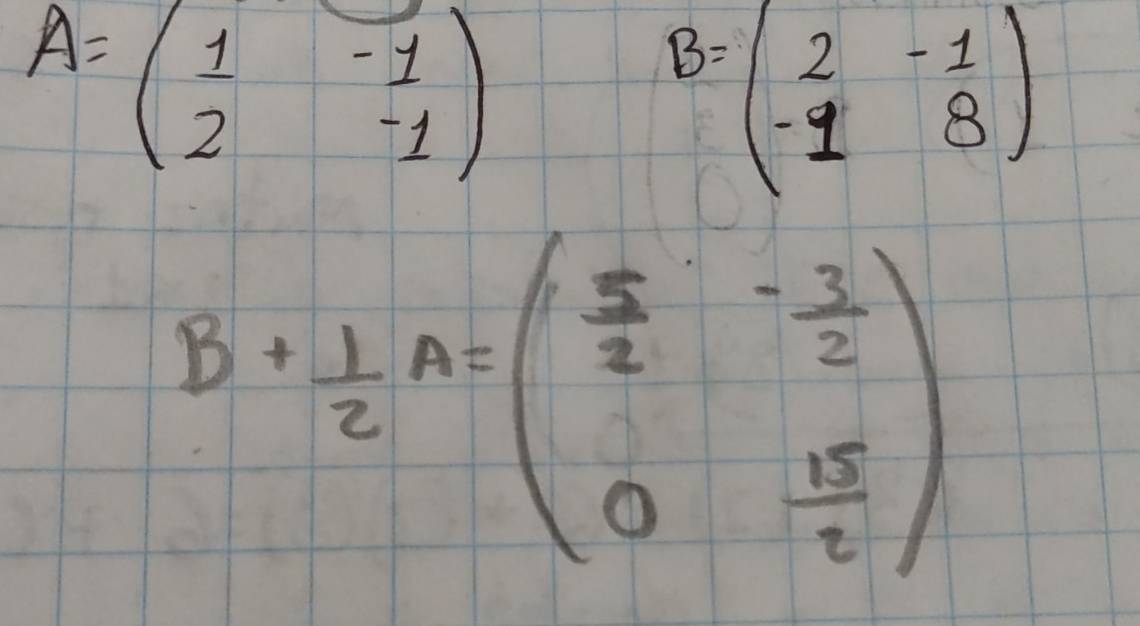 A = ( 1 -1 ) B = ( 2 -1 )
( 2 -1 ) ( -1 8 )
B + 1/2 A = ( 5/2 -3/2 )
( 0 15/2 )